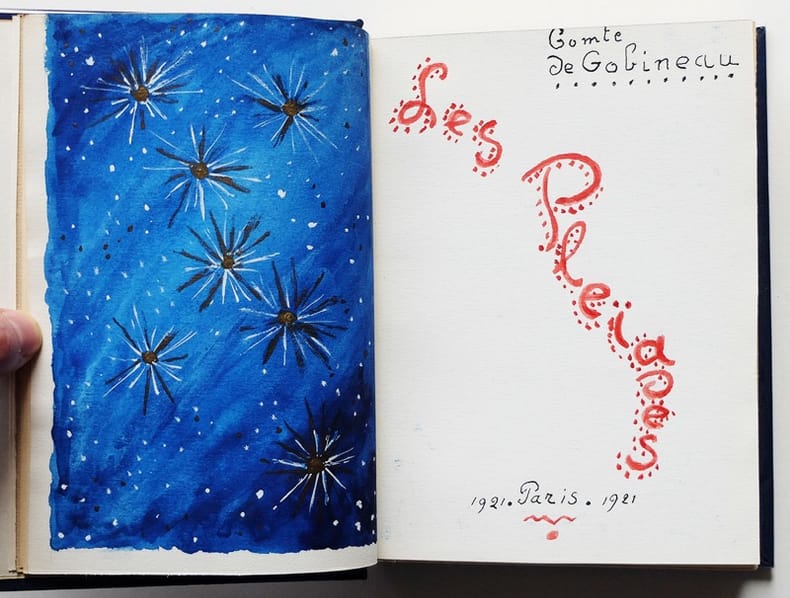 Comte
de Gobineau
Les
Pleïades
1921. Paris. 1921